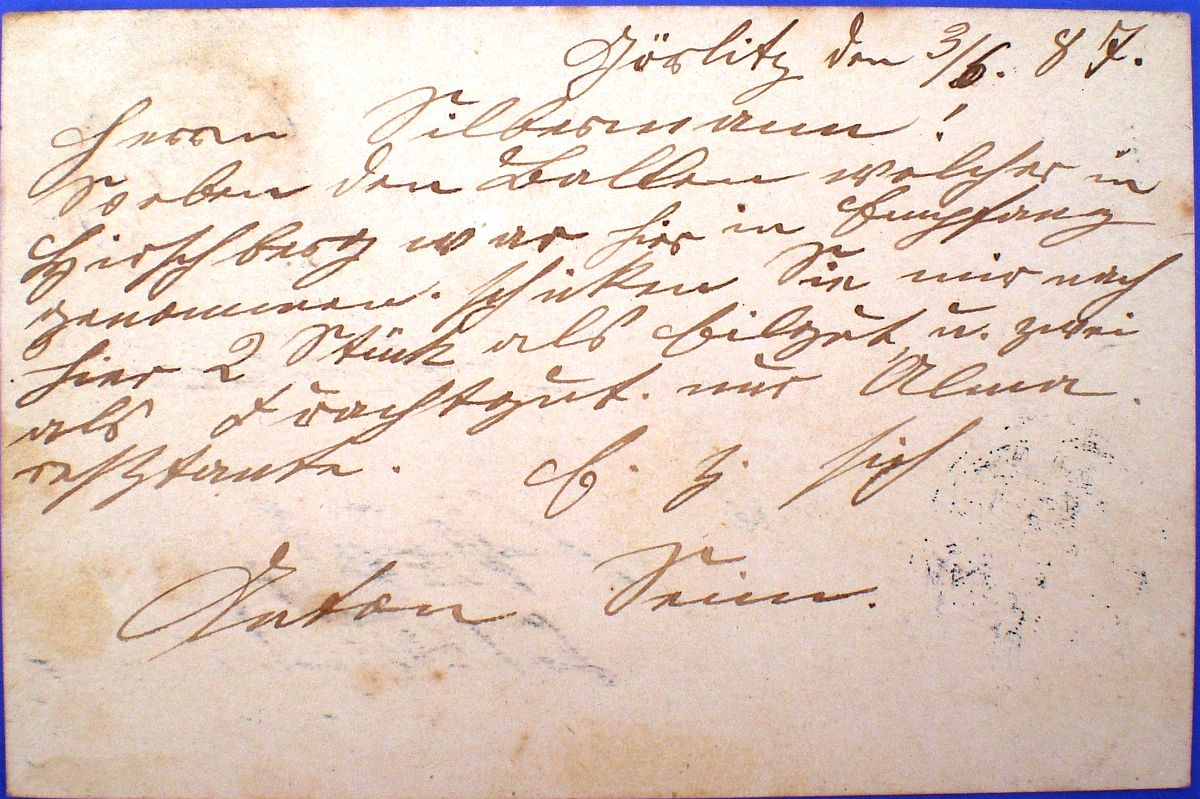 Görlitz den 3/6. 87.
Herrn Silbermann!
Soeben den Ballen welcher in
Hirschberg war hier in Empfang
genommen. schicken Sie mir nach
hier 2 Stück als Eilgut u. zwei
als Frachtgut. nur Alma.
restante. E. z. sich
Anton Seim.